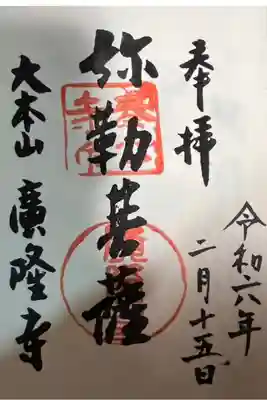 奉拝
令和六年
二月十五日
弥勒菩薩
大本山 廣隆寺